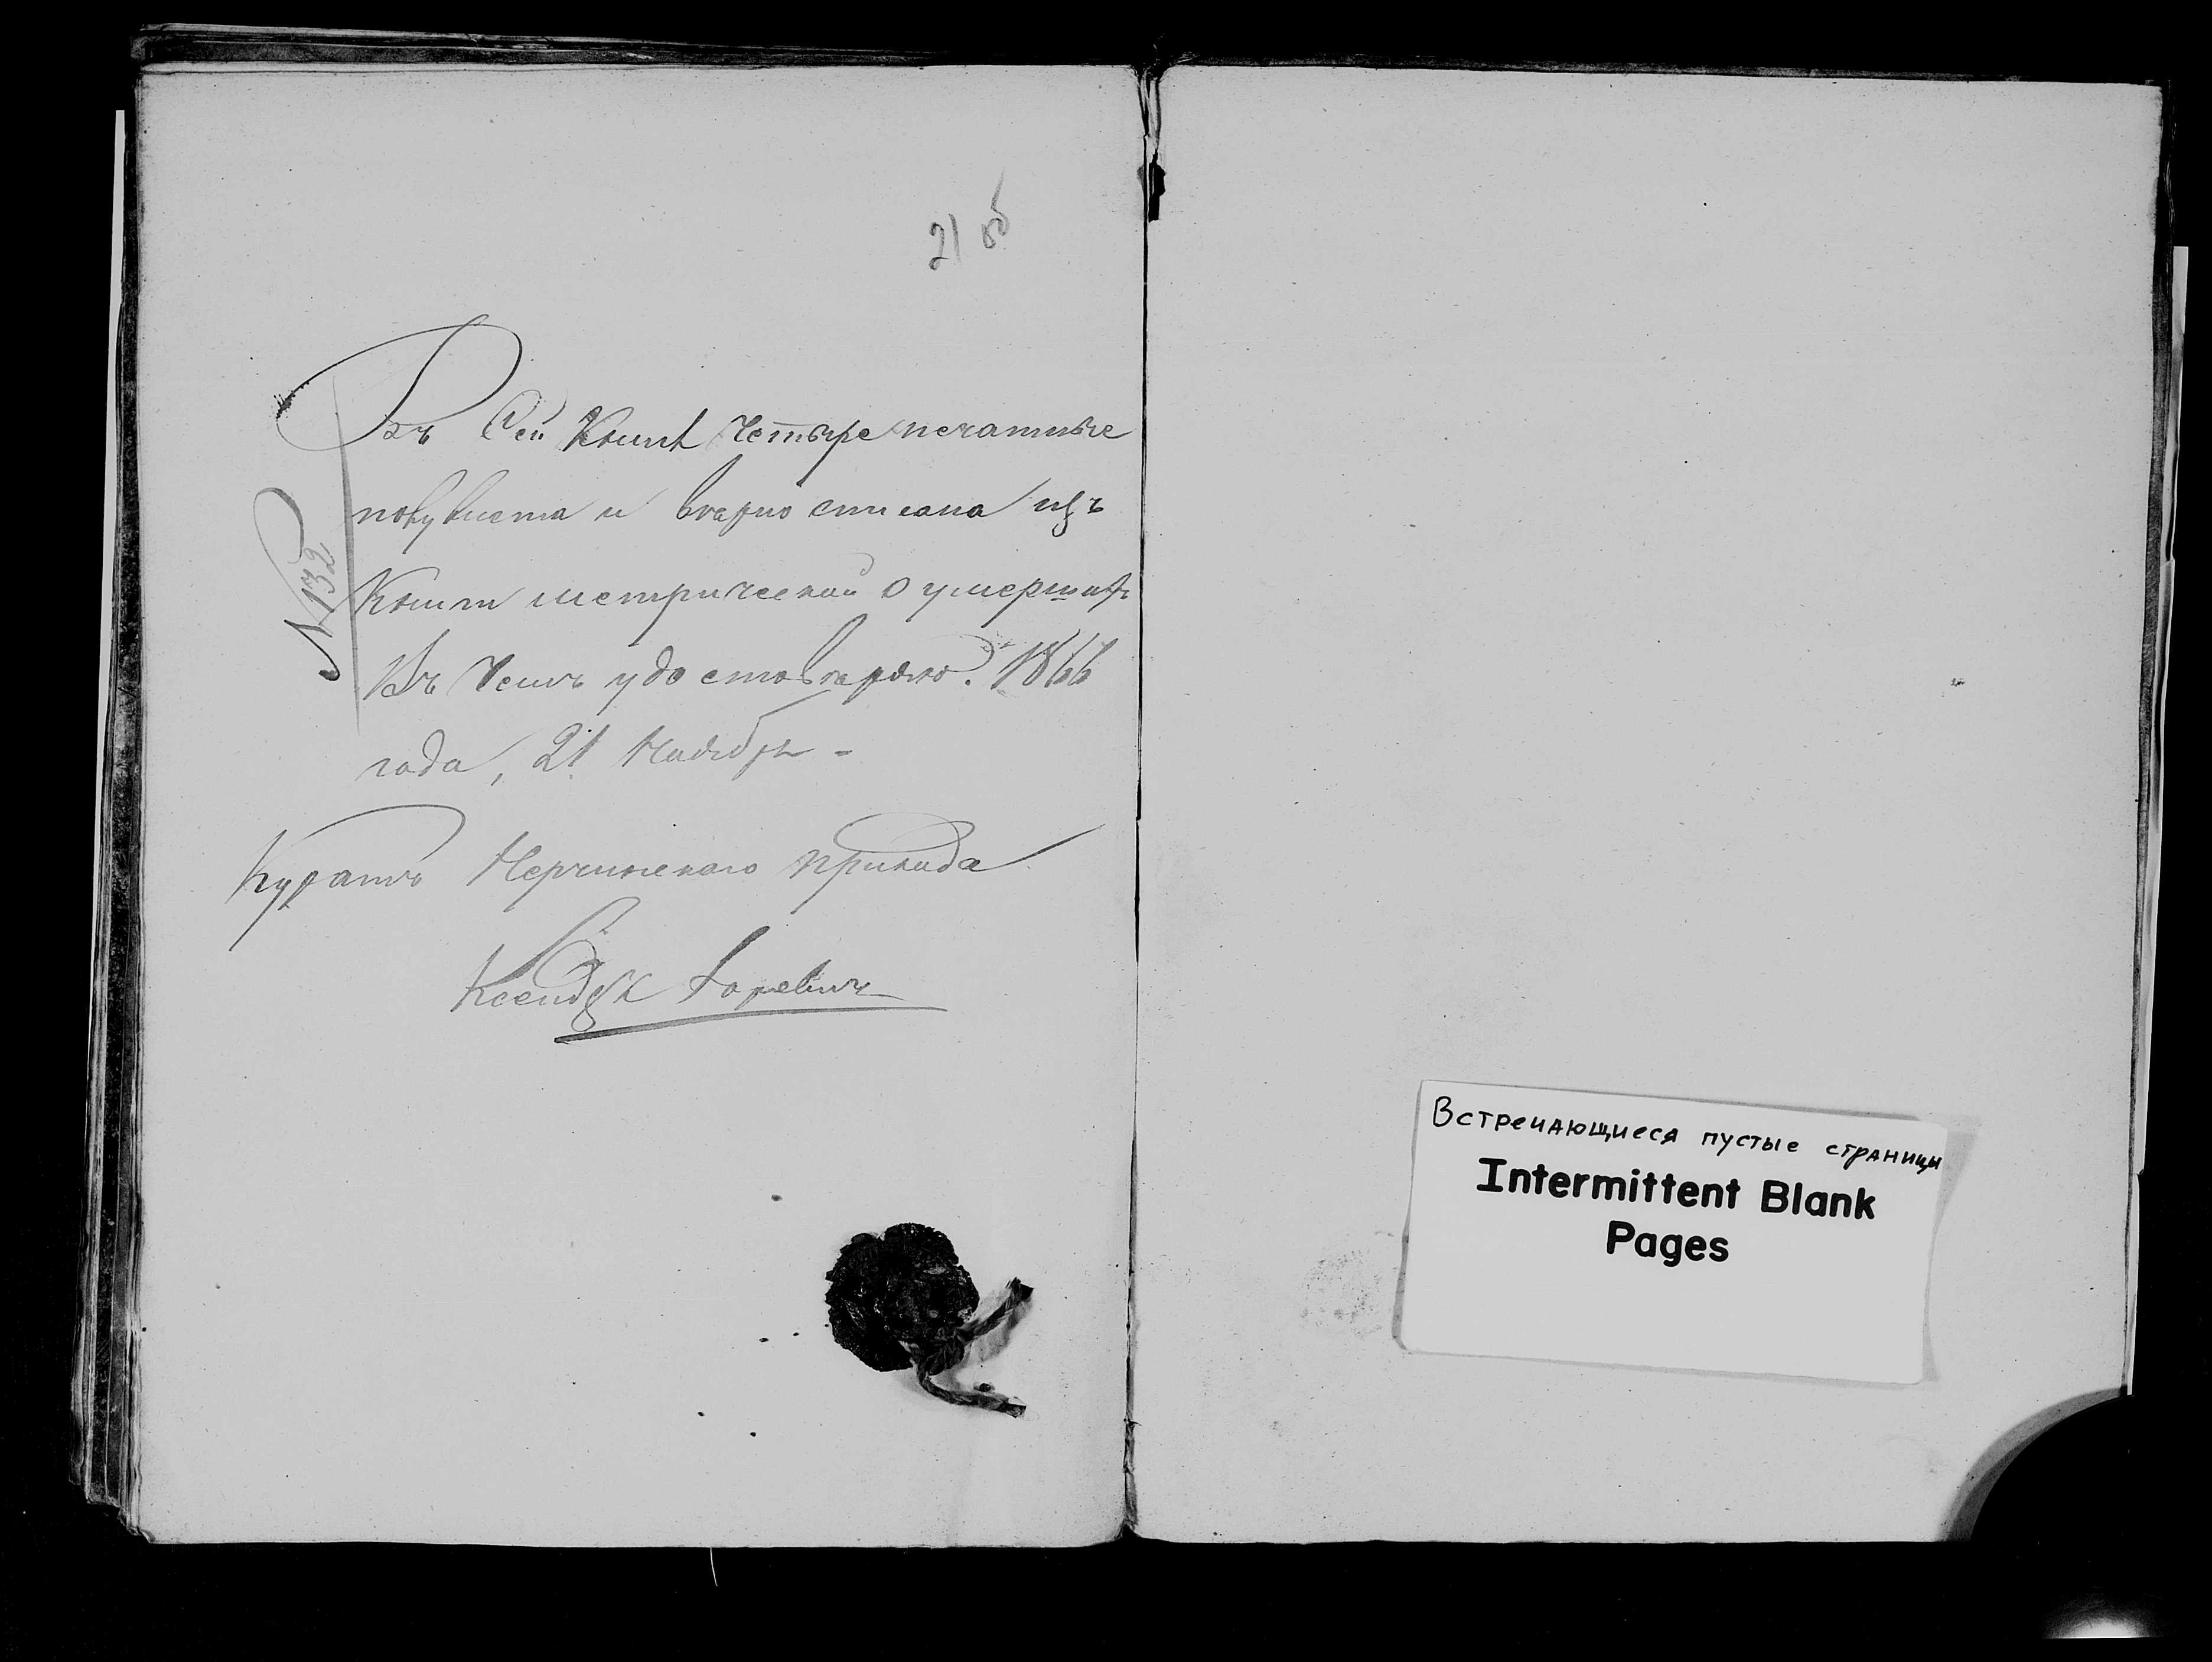 21 об
Въ Сей Книгѣ Четыре печатные
полулиста и вѣрно списана изъ
Книги метрической о умершихъ
Въ Чемъ удостовѣряю. 1866
года, 21 Ноября -
№ 132
Куратъ Нерчинскаго прихода
Ксендзъ
Встречающиеся пустые страницы
Intermittent Blank
Pages